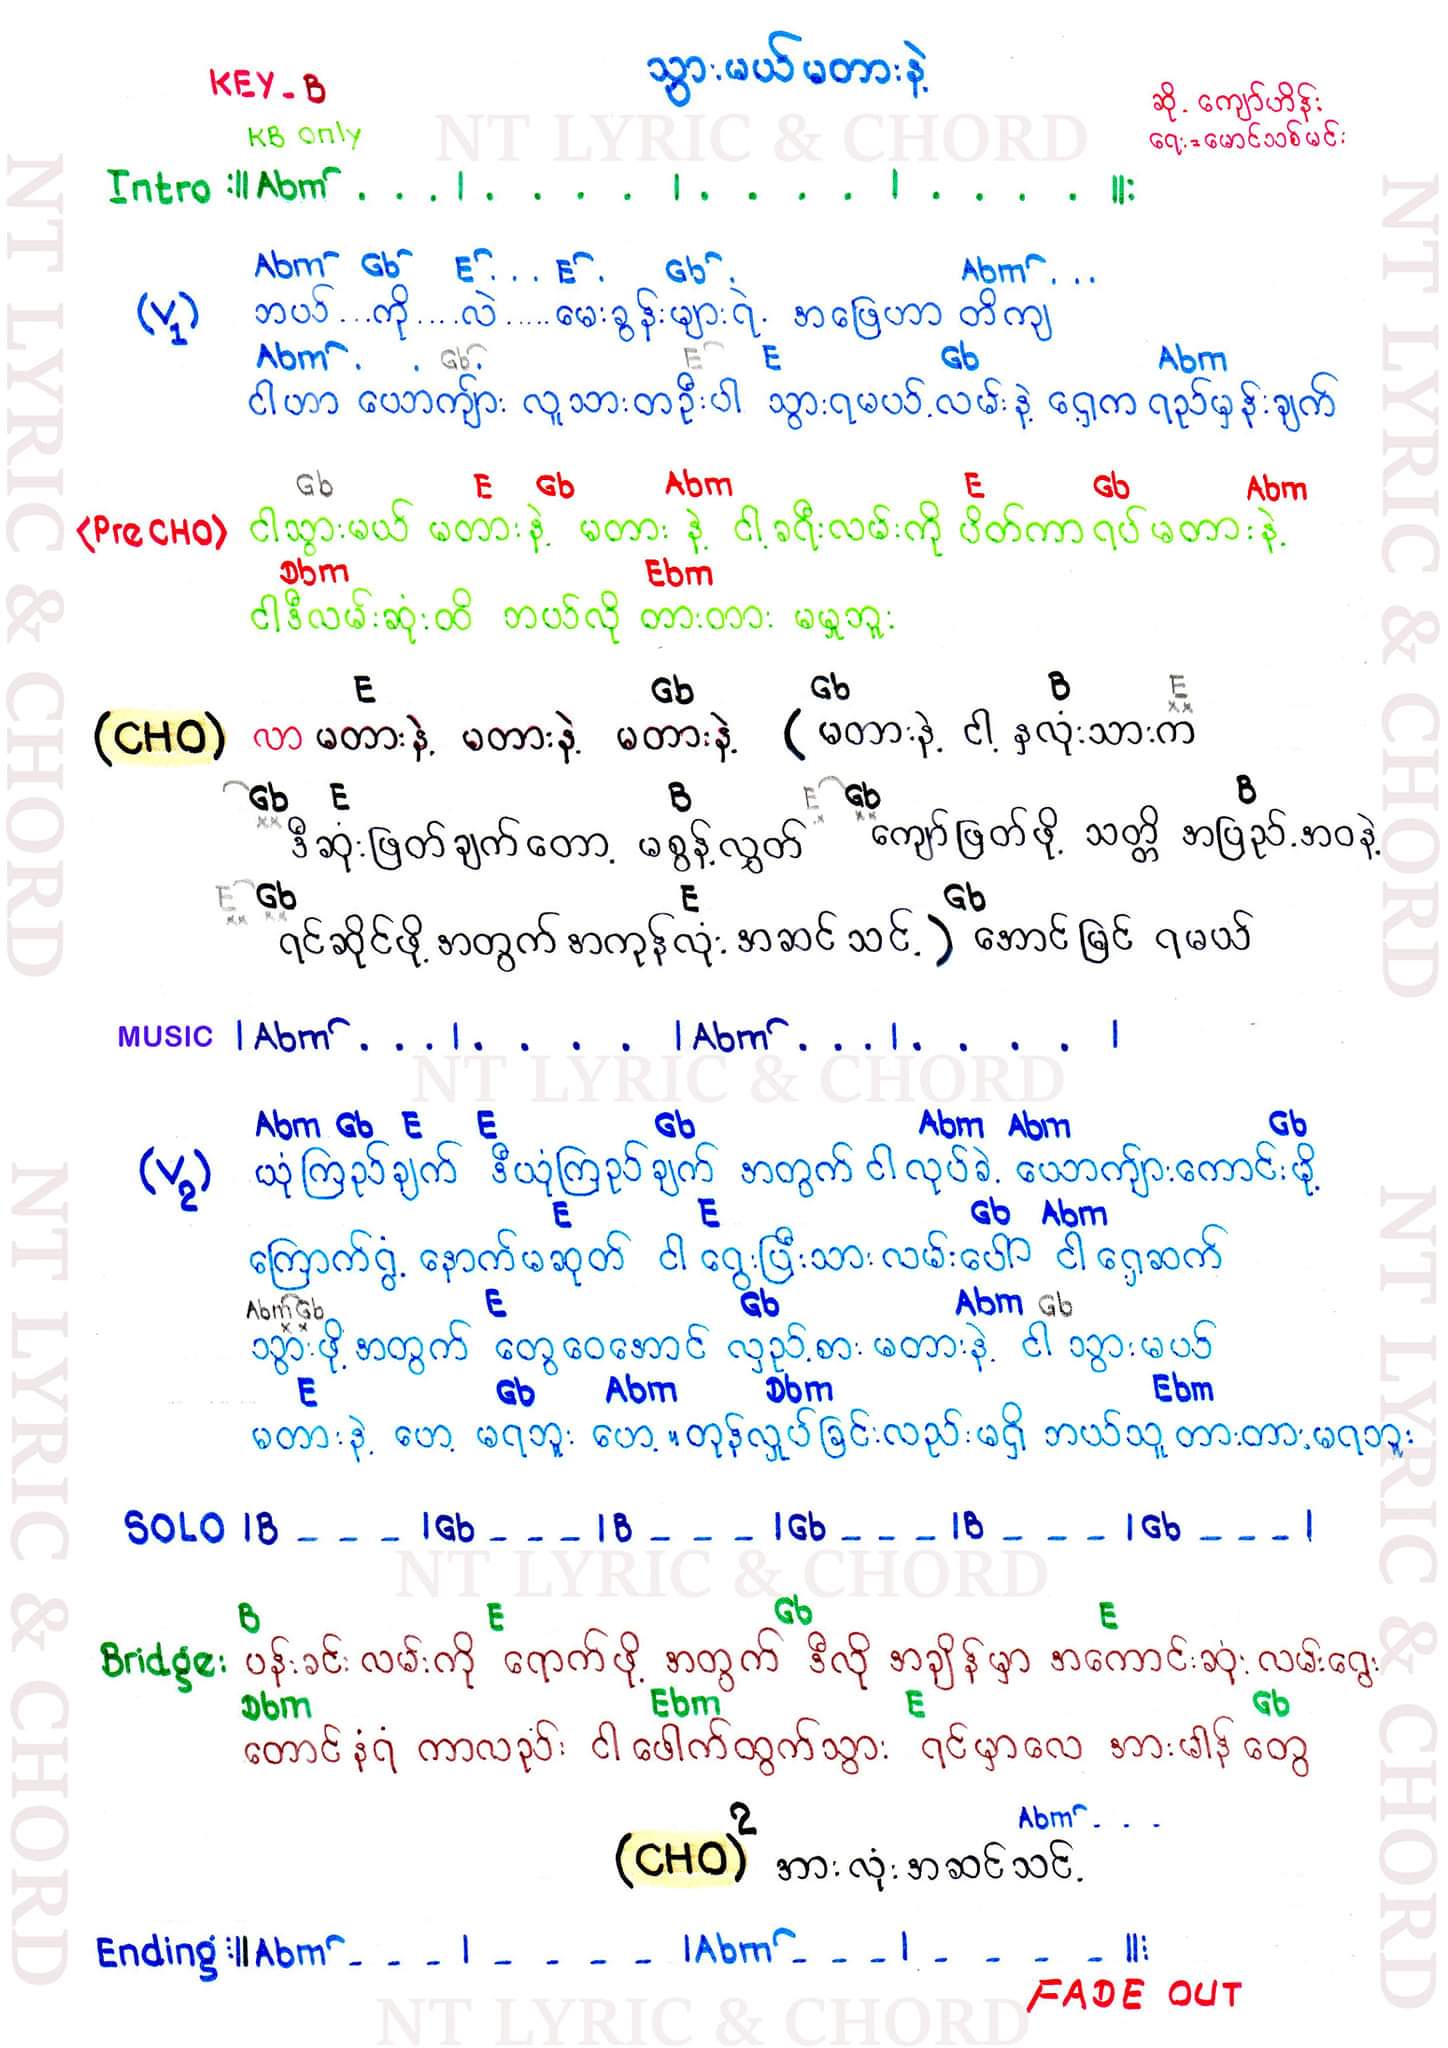 သွားမယ်မတားနဲ့
KEY - B
KB only
ဆို - ကျော်ဟိန်း
ရေး = မောင်သစ်မင်း
NT LYRIC & CHORD
NT LYRIC & CHORD
NT LYRIC & CHORD
Intro :|| Abm . . . | . . . . | . . . . | . . . . ||:
Abm Gb E . . . E . Gb . Abm . . .
(V1) ဘယ်...ကို....လဲ.....မေးခွန်းများရဲ့ အဖြေဟာ တိကျ
Abm . . Gb . E E Gb Abm
ငါဟာ ယောကျ်ား လူသားတဦးပါ သွားရမယ့်လမ်းနဲ့ ရှေ့က ရည်မှန်းချက်
Gb E Gb Abm E Gb Abm
<Pre CHO> ငါသွားမယ် မတားနဲ့ မတား နဲ့ ငါ့ခရီးလမ်းကို ပိတ်ကာရပ်မတားနဲ့
Dbm Ebm
ငါဒီလမ်းဆုံးထိ ဘယ်လို တားတား မမှုဘူး
E Gb Gb B E
(CHO) လာ မတားနဲ့ မတားနဲ့ မတားနဲ့ ( မတားနဲ့ ငါ့ နှလုံးသားက
Gb E B E Gb B
ဒီဆုံးဖြတ်ချက်တော့ မစွန့်လွှတ် ကျော်ဖြတ်ဖို့ သတ္တိ အပြည့်အဝနဲ့
E Gb E Gb
ရင်ဆိုင်ဖို့အတွက် အကုန်လုံး အဆင်သင့် ) အောင်မြင် ရမယ်
MUSIC | Abm . . . | . . . . | Abm . . . | . . . . |
NT LYRIC & CHORD
Abm Gb E E Gb Abm Abm Gb
(V2) ယုံကြည်ချက် ဒီယုံကြည်ချက် အတွက် ငါလုပ်ခဲ့ ယောကျ်ားကောင်းဖို့
E E Gb Abm
ကြောက်ရွံ့ နောက်မဆုတ် ငါ ရွေးပြီးသား လမ်းပေါ် ငါ ရှေ့ဆက်
Abm Gb E Gb Abm Gb
သွားဖို့အတွက် တွေဝေအောင် လှည့်စား မတားနဲ့ ငါ သွားမယ်
E Gb Abm Dbm Ebm
မတားနဲ့ ဟေ့ မရဘူး ဟေ့ ။ တုန်လှုပ်ခြင်းလည်းမရှိ ဘယ်သူ တားတားမရဘူး
SOLO | B _ _ _ | Gb _ _ _ | B _ _ _ | Gb _ _ _ | B _ _ _ | Gb _ _ _ |
NT LYRIC & CHORD
B E Gb E
Bridge: ပန်းခင်းလမ်းကို ရောက်ဖို့ အတွက် ဒီလို အချိန်မှာ အကောင်းဆုံး လမ်းရွေး
Dbm Ebm E Gb
တောင်နံရံ ကာလည်း ငါဖေါက်ထွက်သွား ရင်မှာလေ အားမာန်တွေ
Abm . . .
(CHO)2 အားလုံးအဆင်သင့်
Ending :|| Abm _ _ _ | _ _ _ _ | Abm _ _ _ | _ _ _ _ ||:
FADE OUT
NT LYRIC & CHORD
NT LYRIC & CHORD
NT LYRIC & CHORD